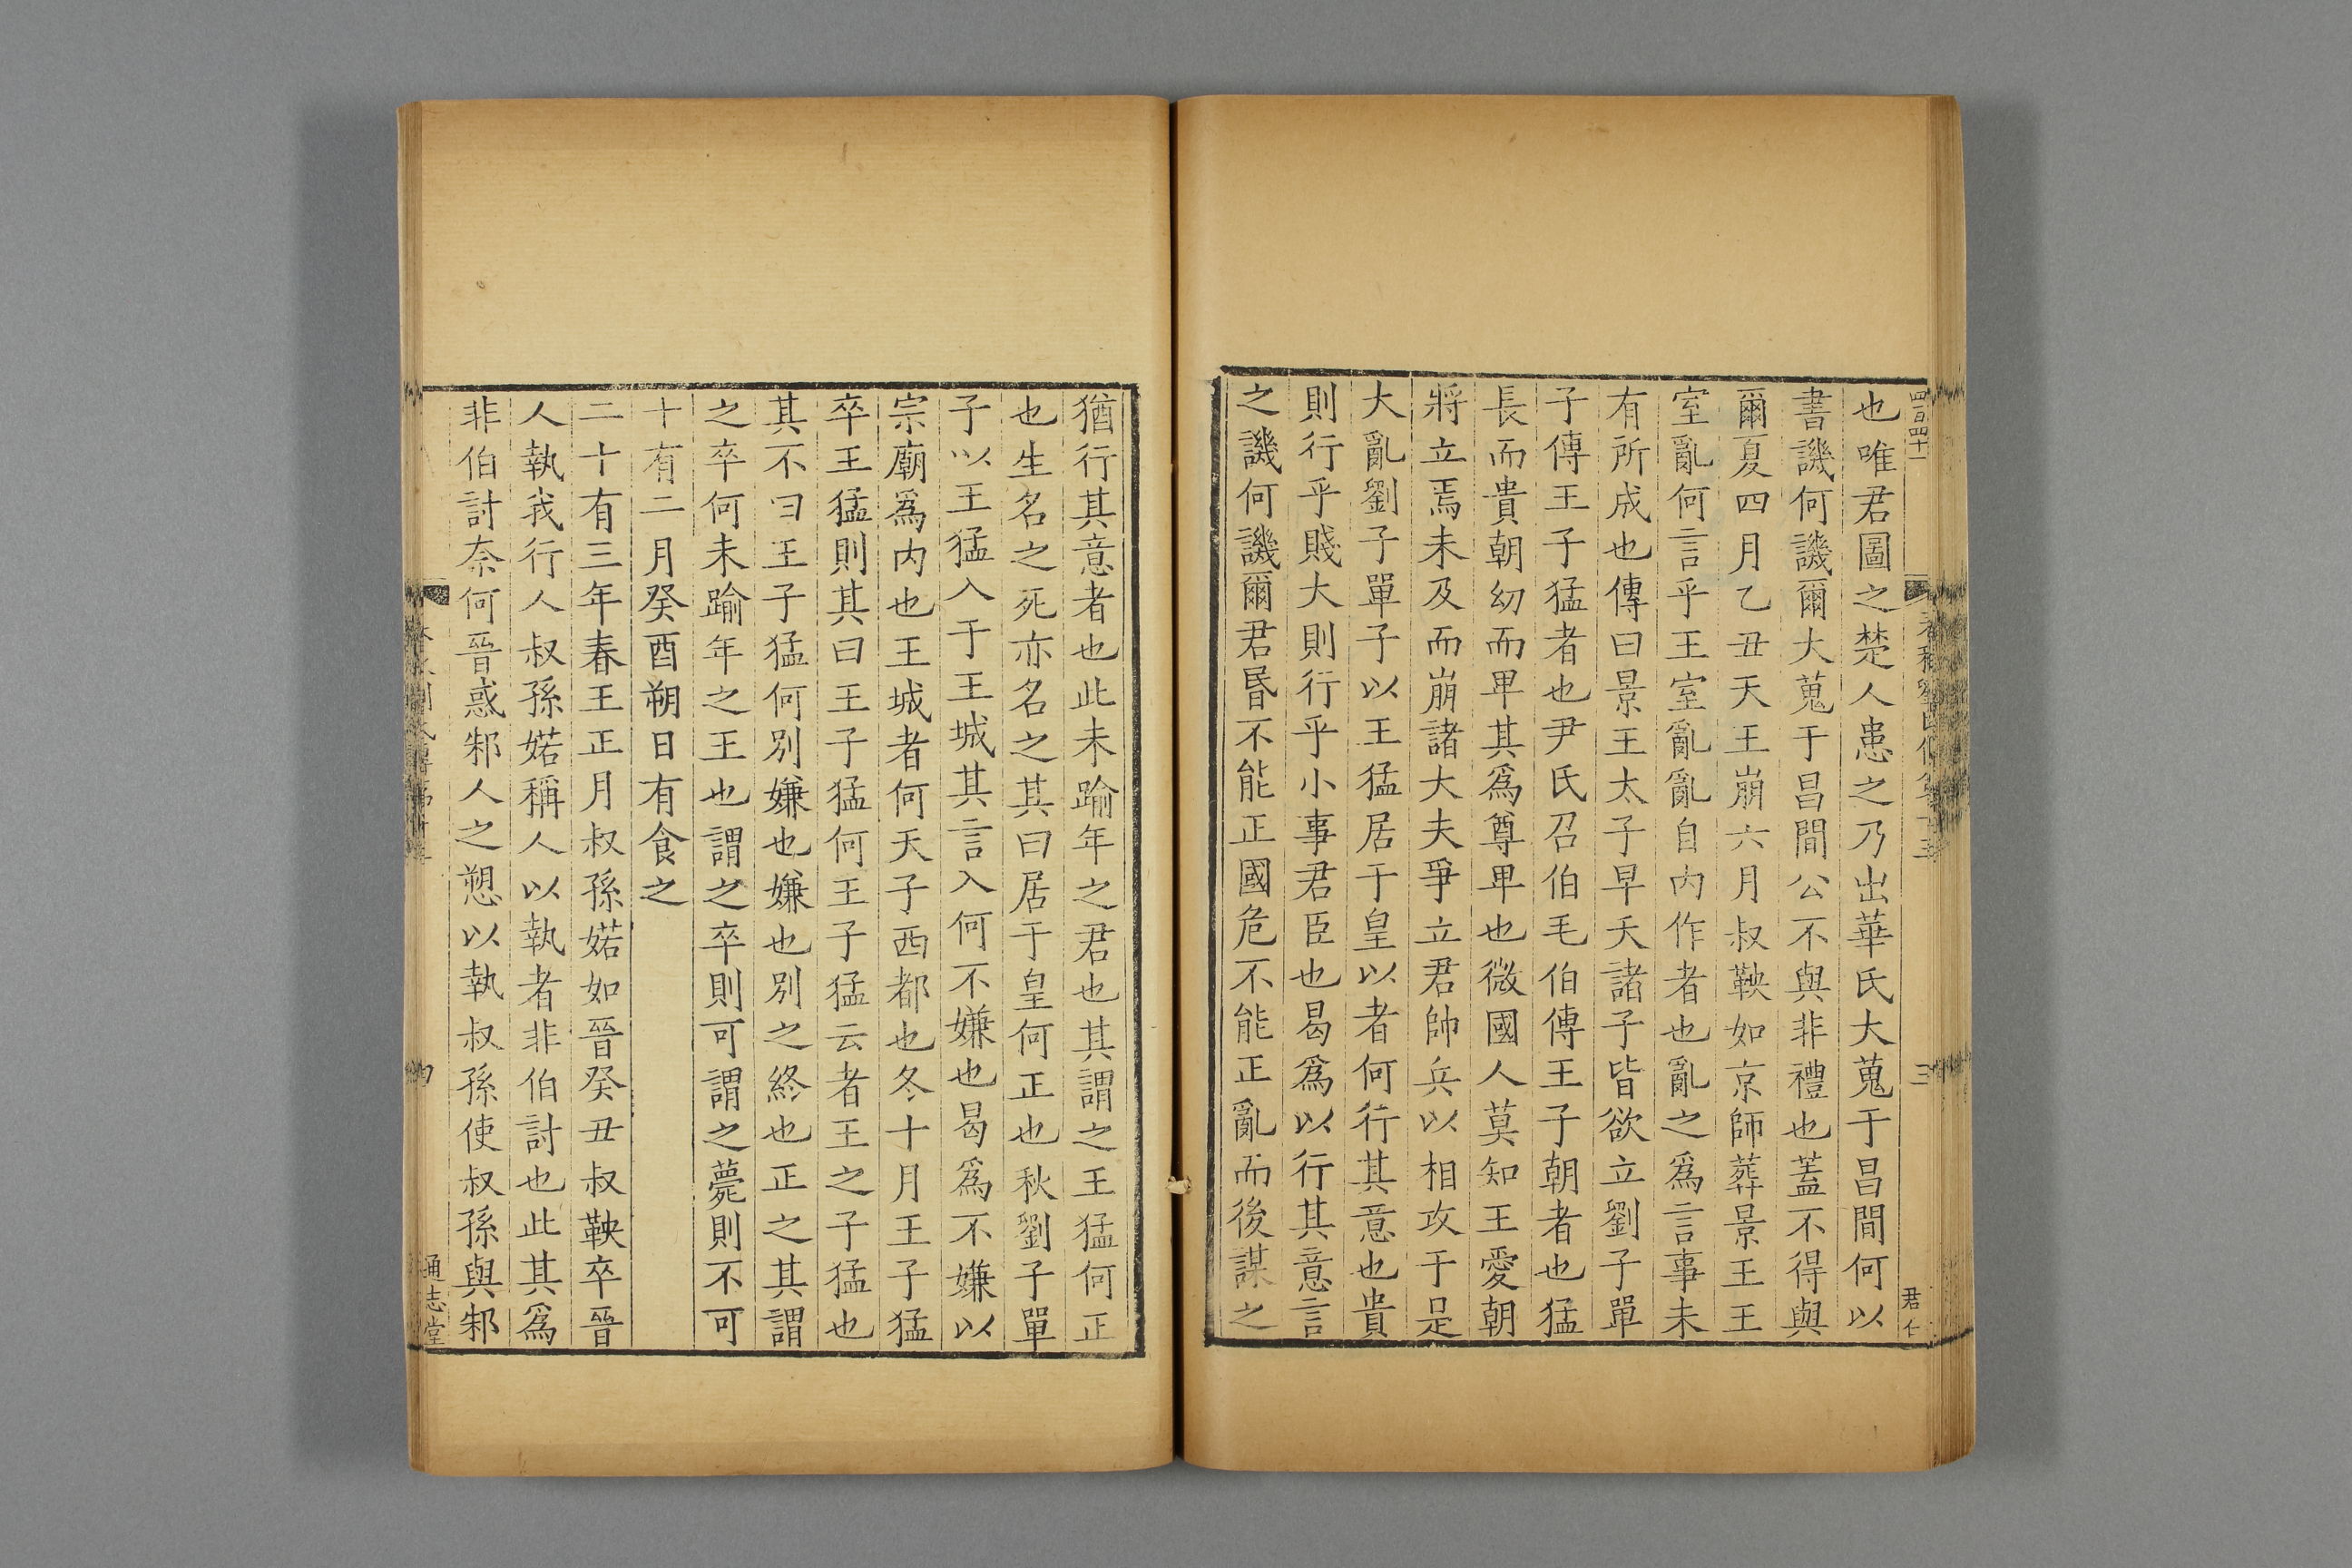 四百四十一
三
君仁
也唯君圖之楚人患之乃出華氏大蒐于昌閒何以
書譏何譏爾大蒐于昌閒公不與非禮也蓋不得與
爾夏四月乙丑天王崩六月叔鞅如京師葬景王王
室亂何言乎王室亂亂自內作者也亂之爲言事未
有所成也傳曰景王太子早夭諸子皆欲立劉子單
子傳王子猛者也尹氏召伯毛伯傅王子朝者也猛
長而貴朝幼而卑其爲尊卑也微國人莫知王愛朝
將立焉未及而崩諸大夫爭立君帥兵以相攻于是
大亂劉子單子以王猛居于皇以者何行其意也貴
則行乎賤大則行乎小事君臣也曷爲以行其意言
之譏何譏爾君昬不能正國危不能正亂而後謀之
猶行其意者也此未踰年之君也其謂之王猛何正
也生名之死亦名之其曰居于皇何正也秋劉子單
子以王猛入于王城其言入何不嫌也曷爲不嫌以
宗廟爲內也王城者何天子西都也冬十月王子猛
卒王猛則其曰王子猛何王子猛云者王之子猛也
其不曰王子猛何別嫌也嫌也別之終也正之其謂
之卒何未踰年之王也謂之卒則可謂之薨則不可
十有二月癸酉朔日有食之
二十有三年春王正月叔孫婼如晉癸丑叔鞅卒晉
人執我行人叔孫婼稱人以執者非伯討也此其爲
非伯討奈何晉惑邾人之愬以執叔孫使叔孫與邾
通志堂